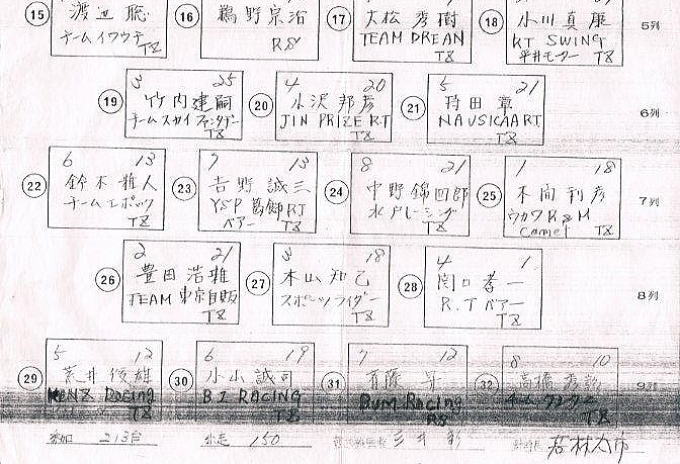 15
渡辺 聡
チームイワウチ
TZ
16
鵜野宗治
RΓ
17
大松 秀樹
TEAM DREAN
TZ
18
小川真康
RT SWING
平井モーター TZ
5列
19
3 25
竹内建嗣
チームスカイ
TZ
20
4 20
小沢邦彦
JIN PRIZE RT
TZ
21
5 21
持田 章
NAUSICAART
TZ
6列
22
6 13
鈴木雅人
チームエポック
TZ
23
7 13
吉野誠三
YSP 葛飾RT
ベアー TZ
24
8 21
中野錦四郎
水戸レーシング
TZ
25
1 18
本間利彦
ウカワR&M
Comet TZ
7列
26
2 21
豊田浩雅
TEAM 東京自販
TZ
27
3 18
本山知己
スポーツライダー
TZ
28
4 1
関口孝一
R.T ベアー
TZ
8列
29
5 12
荒井俊雄
KENZ Racing
TZ
30
6 19
小山誠司
BI RACING
TZ
31
7 12
斉藤 昇
BUM Racing
32
8 10
高橋
TZ
9列
参加 213台
出走 150